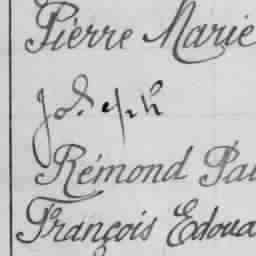 Pierre Marie
Joseph
Rémond Pau
François Edoua